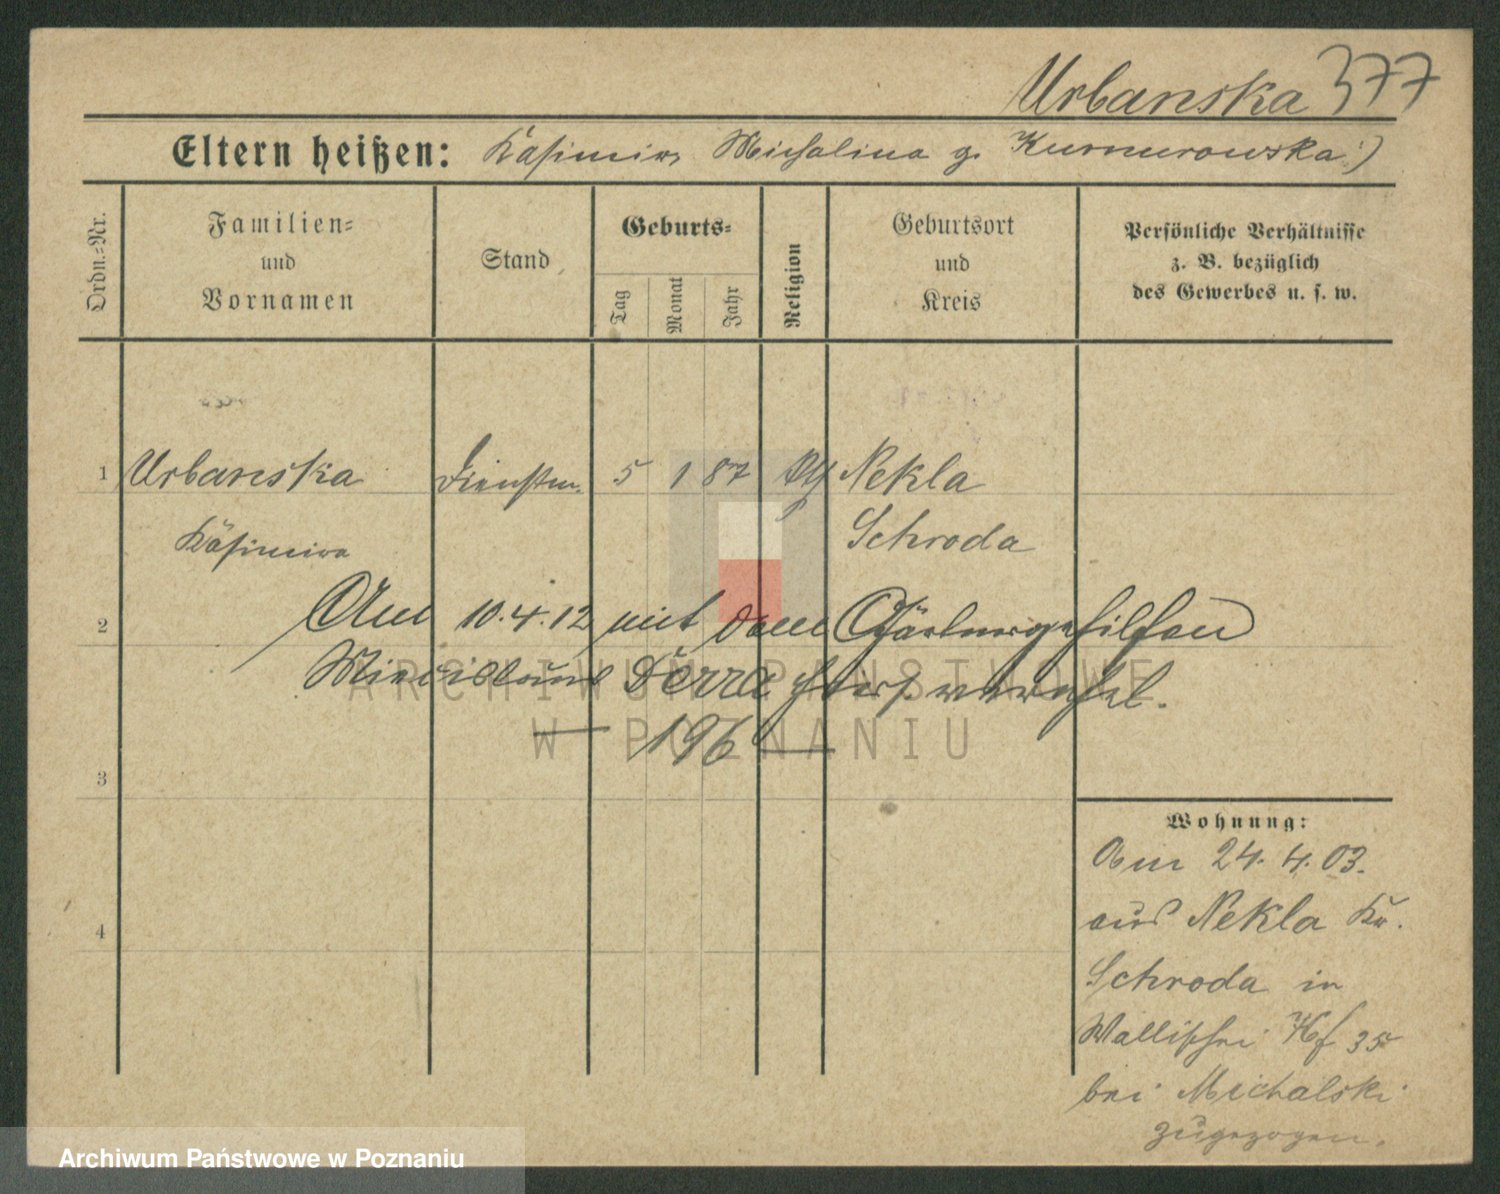 Urbanska 377
Eltern heißen: Kasimir, Michalina g.
Ordn.-Nr.
Familien-
und
Vornamen
Stand
Geburts-
Tag
Monat
Jahr
Religion
Geburtsort
und
Kreis
Persönliche Verhältnisse
z. B. bezüglich
des Gewerbes u. s. w.
1 Urbanska Dienstm. 5 1 87 Nekla
Kasimira Schroda
2 Am 10.4.12 mit dem Gärtnergehilfen
ARCHIWUM PAŃSTWOWE
W POZNANIU
Dorra verehel.
— 196 —
3
4
Wohnung:
Am 24. 4. 03.
aus Nekla Kr.
Schroda in
Wallischei 35
bei Michalski
zugezogen.
Archiwum Państwowe w Poznaniu